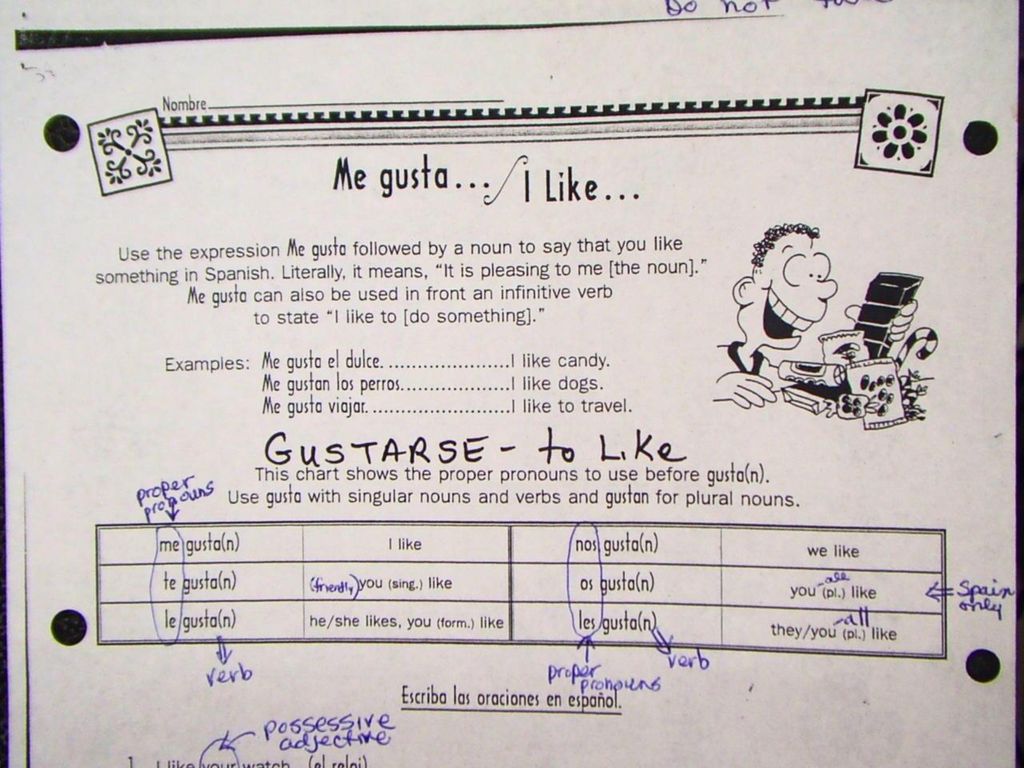 Do not
Nombre
Me gusta... I Like...
Use the expression Me gusta followed by a noun to say that you like
something in Spanish. Literally, it means, "It is pleasing to me [the noun]."
Me gusta can also be used in front an infinitive verb
to state "I like to [do something]."
Examples: Me gusta el dulce. I like candy.
Me gustan los perros. I like dogs.
Me gusta viajar. I like to travel.
GUSTARSE - to Like
This chart shows the proper pronouns to use before gusta(n).
Use gusta with singular nouns and verbs and gustan for plural nouns.
proper
pronouns
me gusta(n) I like nos gusta(n) we like
te gusta(n) (friendly) you (sing.) like os gusta(n) you all (pl.) like
Spain
only
le gusta(n) he/she likes, you (form.) like les gusta(n) they/you all (pl.) like
verb
proper
pronouns
verb
Escriba las oraciones en español.
possessive
adjective
1. I like your watch. (el reloj)